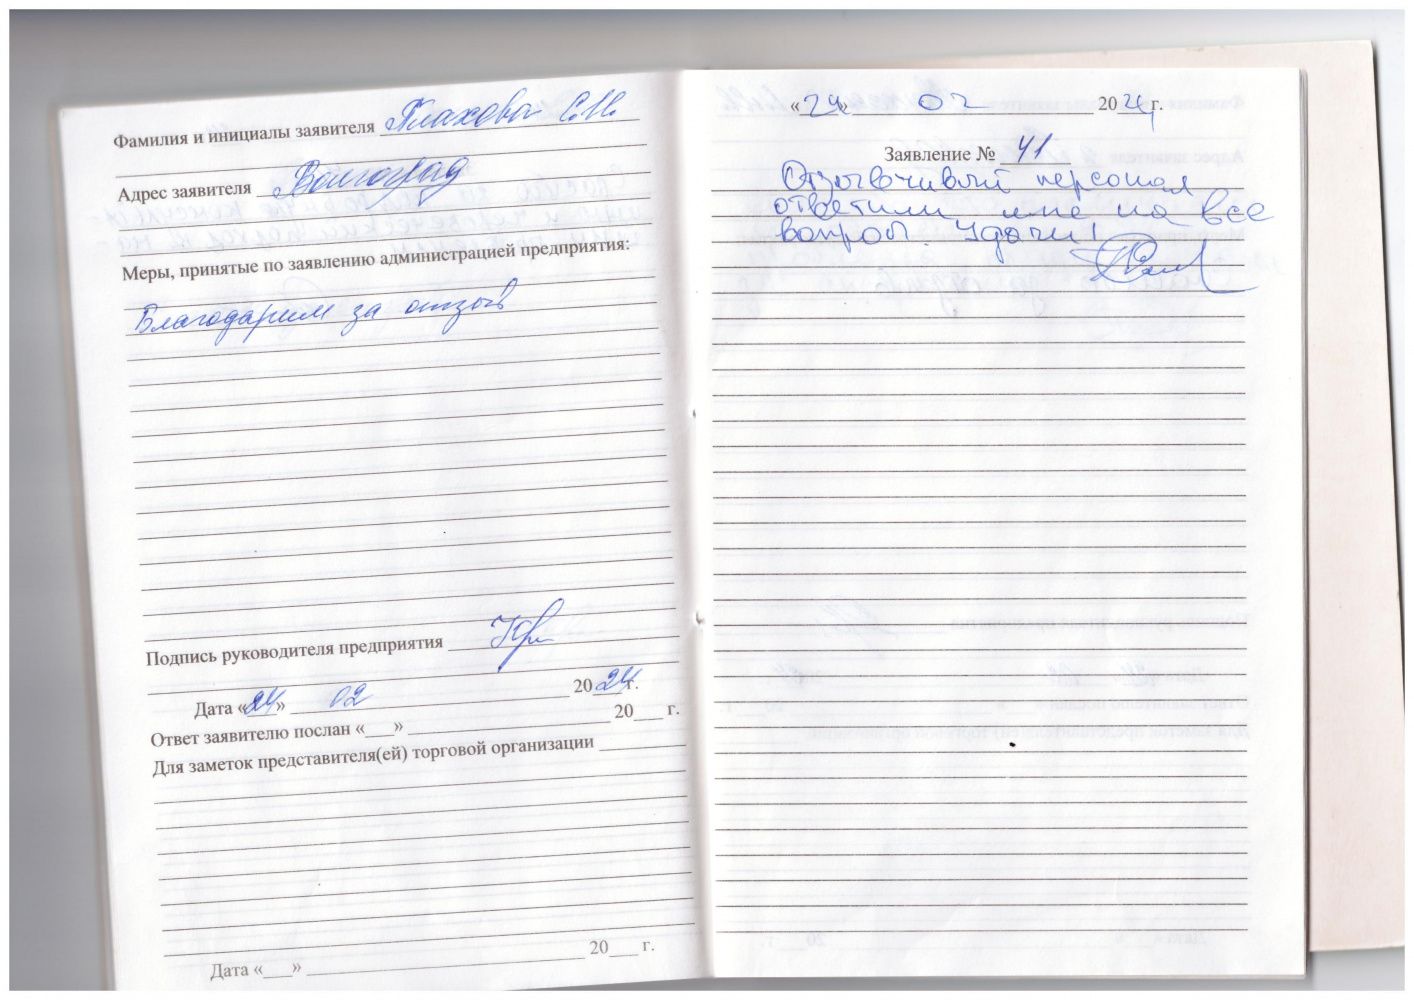 Фамилия и инициалы заявителя Плахова С.Н.
Адрес заявителя Волгоград
Меры, принятые по заявлению администрацией предприятия:
Благодарим за отзыв
Подпись руководителя предприятия
Дата «24» 02 2024 г.
Ответ заявителю послан «___» 20___ г.
Для заметок представителя(ей) торговой организации
Дата «___» 20___ г.
«24» 02 2024 г.
Заявление № 41
Отзывчивый персонал
ответили мне на все
вопросы. Удачи!